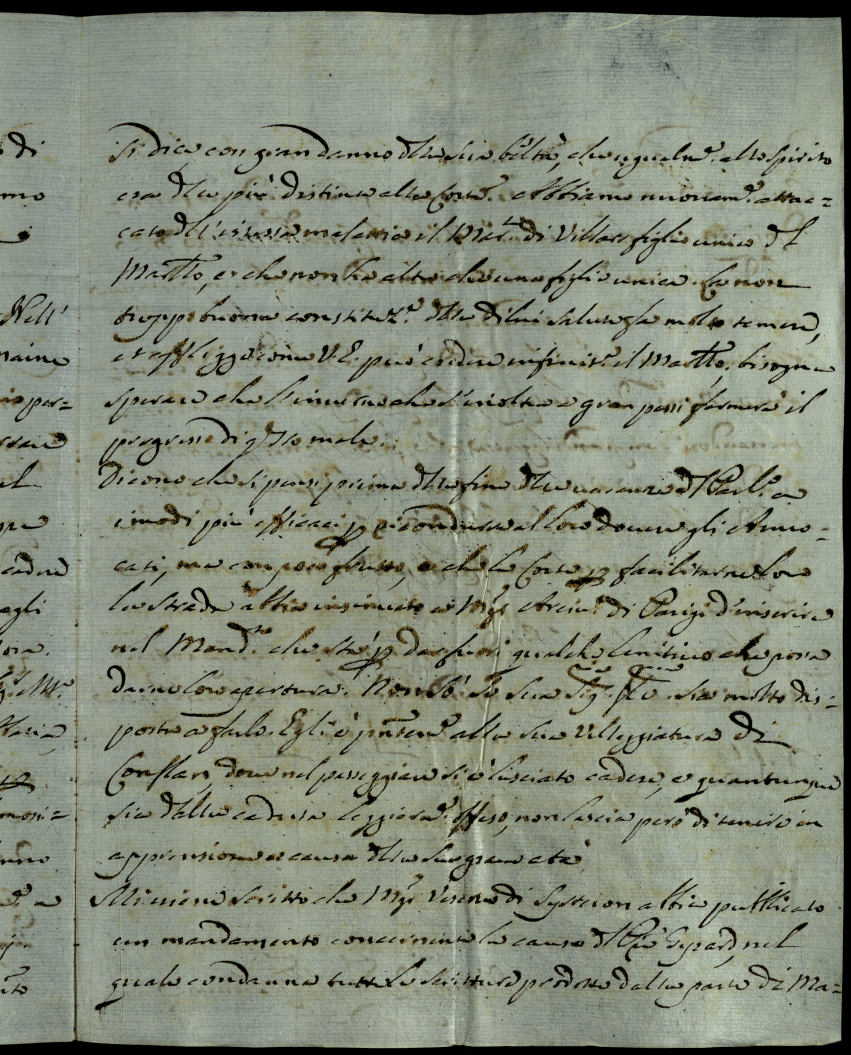 di
si dice con gran danno dlla sua beltà, che ugualm.e allo spirito
mo
era dlle più distinte alla Corte. Abbiamo nuovam.e attac=
cato dll'istessa malattia il Mar. di Villars figlio unico dl
Mar̃llo, e che non ha altro che una figlia unica. La non
Nell'
troppo buona constituz.e dlla di lui salute fa molto temere,
maine
et affligge come V.E. può credere infinit.e il Mar̃llo, bisogna
per=
sperare che l'inverno che s'inoltra a gran passi fermerà il
progresso di q̃sto male.
Dicono che si pensi prima dlla fine dlle vacanze dl Parl.o a
i modi più efficaci p ricondurre al loro dovere gli Avvo=
cati, ma con poco frutto, e che la Corte p facilitarne loro
cadere
la strada abbia insinuato a Mgr Arciv.o di Parigi d'inserire
agli
nel Mand.to che stà p dar fuori qualche lenitivo che possa
darne loro apertura. Non sò se Sua Sig.ria sia molto dis=
posta a farlo. Egli è p̃ntem.e alla sua Villeggiatura di
Conflans, dove nel passeggiare si è lasciato cadere, e quantunque
sia dalla caduta leggierm.e offeso, non lascia però di tenere in
apprensione a causa dlla sua grave età.
Mi viene scritto che Mgr Vescovo di Systeron abbia pubblicato
un mandamento concernente la causa dl Pre Gyrard, nel
quale condanna tutte le scritture prodotte dalla parte di Ma=